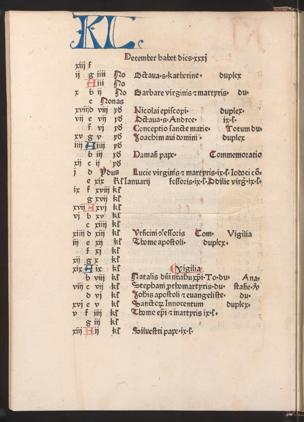 KL
December habet dies·xxxj
xiij f
ij g iiij No Octaua·s·katherine· duplex
A iij No
x b ij No Barbare virginis ⁊ martyris· du·
c Nonas
xviij d viij yd Nicolai episcopi· duplex
vij e vij yd Octaua·s·Andree· ix·l·
f vj yd Conceptio sancte marie· Totum du·
xv g v yd Joachim aui domini· duplex·
iiij A iiij yd
b iij yd Damasi pape· Commemoratio
xij c ij yd
j d Ydus Lucie virginis ⁊ martyris·ix·l·
e xix kl Januarij
ix f xviij kl
g xvij kl
xvij A xvj kl
vj b xv kl
c xiiij kl
xiiij d xiij kl Vigilia
iij e xij kl Thome apostoli· duplex·
f xj kl
xj g x kl
xix A ix kl Vigilia
b viij kl To·du· Ana·
viij c vij kl Stephani prothomartyris·du·
d vj kl Johis apostoli ⁊ euangeliste· du·
xvj e v kl Sanctorum Innocentum duplex·
v f iiij kl Thome epi ⁊ martyris ix·l·
g iij kl
xiij A ij kl Siluestri pape·ix·l·